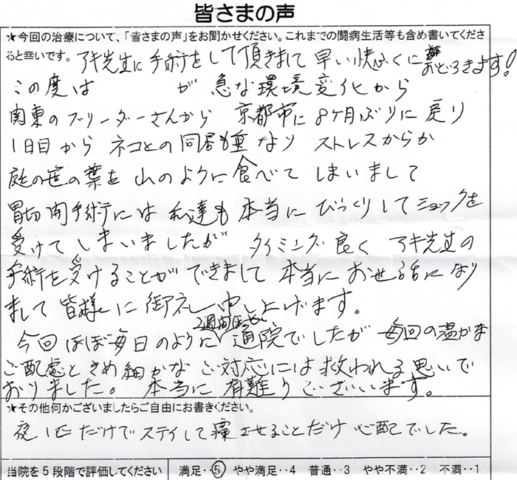 皆さまの声
★今回の治療について、「皆さまの声」をお聞かせください。これまでの闘病生活等も含め書いてくださ
ると幸いです。アキ先生に手術をして頂きまして早い快ふくにおどろきます!
この度は が 急な環境変化から
関東のブリーダーさんから 京都市に8ケ月ぶりに戻り
1日目から ネコとの同居も重なり ストレスからか
庭の笹の葉を 山のように食べて しまいまして
胃切開手術には 私達も 本当に びっくりして ショックを
受けて しまいましたが タイミング良く アキ先生の
手術を受けることが できまして 本当に お世話になり
まして 皆様に 御礼 申し上げます。
今回 ほぼ毎日のように 2週間ほど 通院でしたが 毎回の温かな
ご配慮ときめ細かな ご対応には 救われる思いで
おりました。 本当に 有難うございいます。
★その他何かございましたらご自由にお書きください。
夜 1匹だけで ステイして 寝させることだけ 心配でした。
当院を5段階で評価してください 満足‥5 やや満足‥4 普通‥3 やや不満‥2 不満‥1